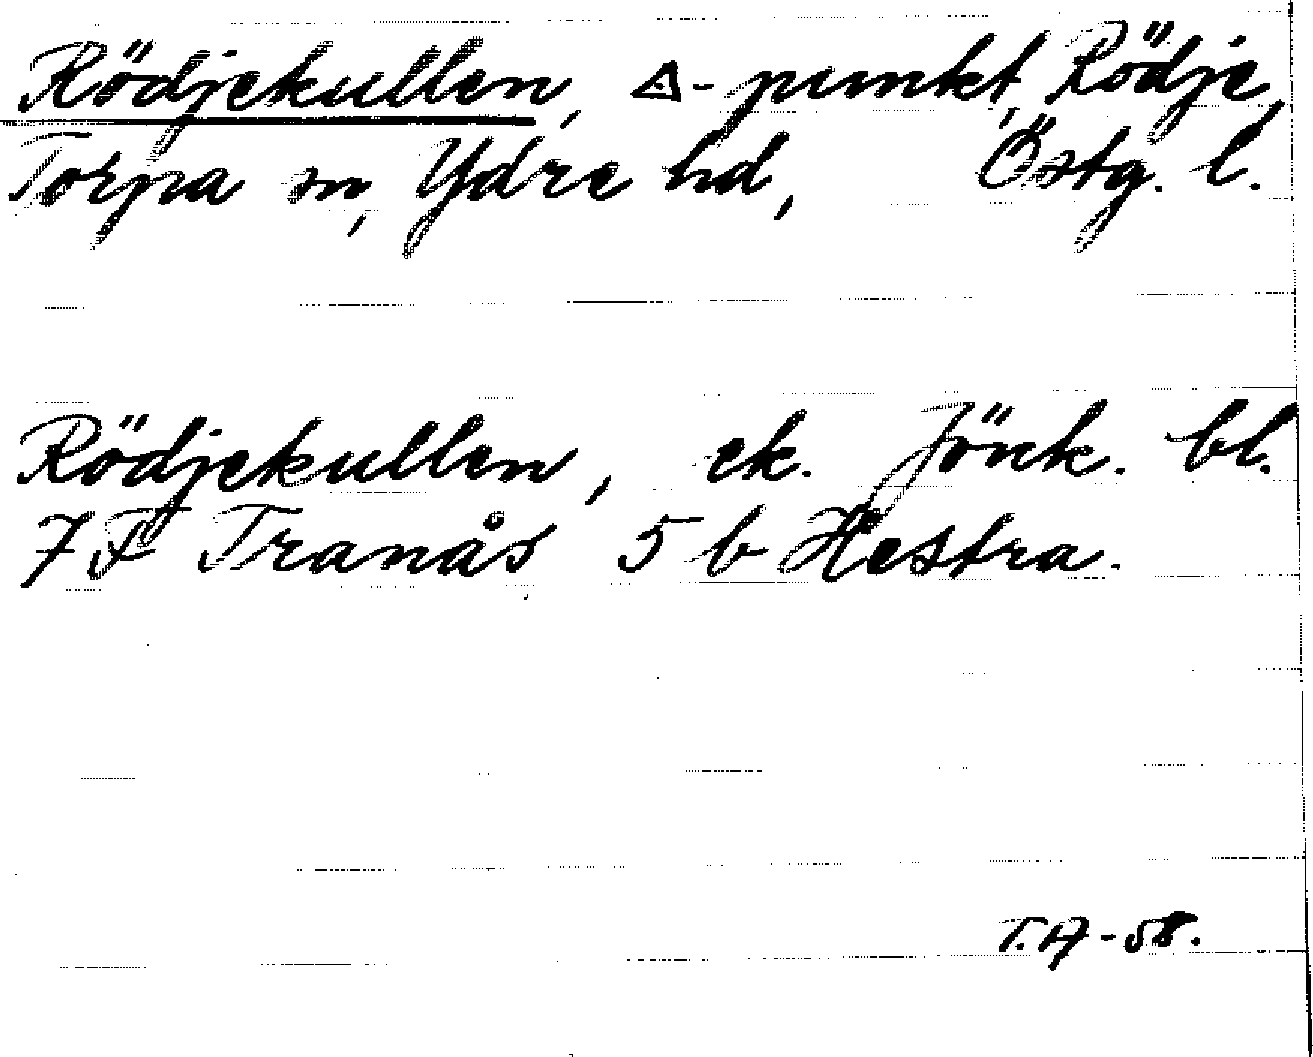 Rödjekullen, △-punkt, Rödje,
Torpa sn, Ydre hd, Östg. l.
Rödjekullen, ek. Jönk. bl.
7 F Tranås 5 b Hestra.
T.A-58.